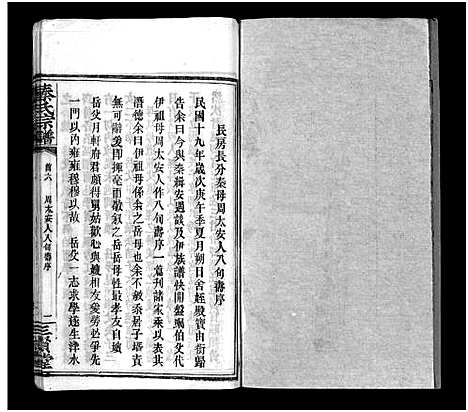 長房長分秦母周太安人八旬壽序
民國十九年歲次庚午季夏月朔日舍姪殿寶由衙歸
告余曰今與秦緝安遇談及伊族譜快開盤囑伯父代
伊祖母周太安人作八旬壽序一篇刊諸家乘以表其
潛德余曰伊祖母係余之岳母也余不敏忝居子壻責
無可辭爰即搦毫而敬叙之岳母性最孝友自嬪
岳父月軒府君頗得舅姑歡心與娣相友愛勞必爭先
一門以內雍雍穆穆以故 岳父一志求學遂生泮水
秦氏宗譜
首六 周太安人八旬壽序
一